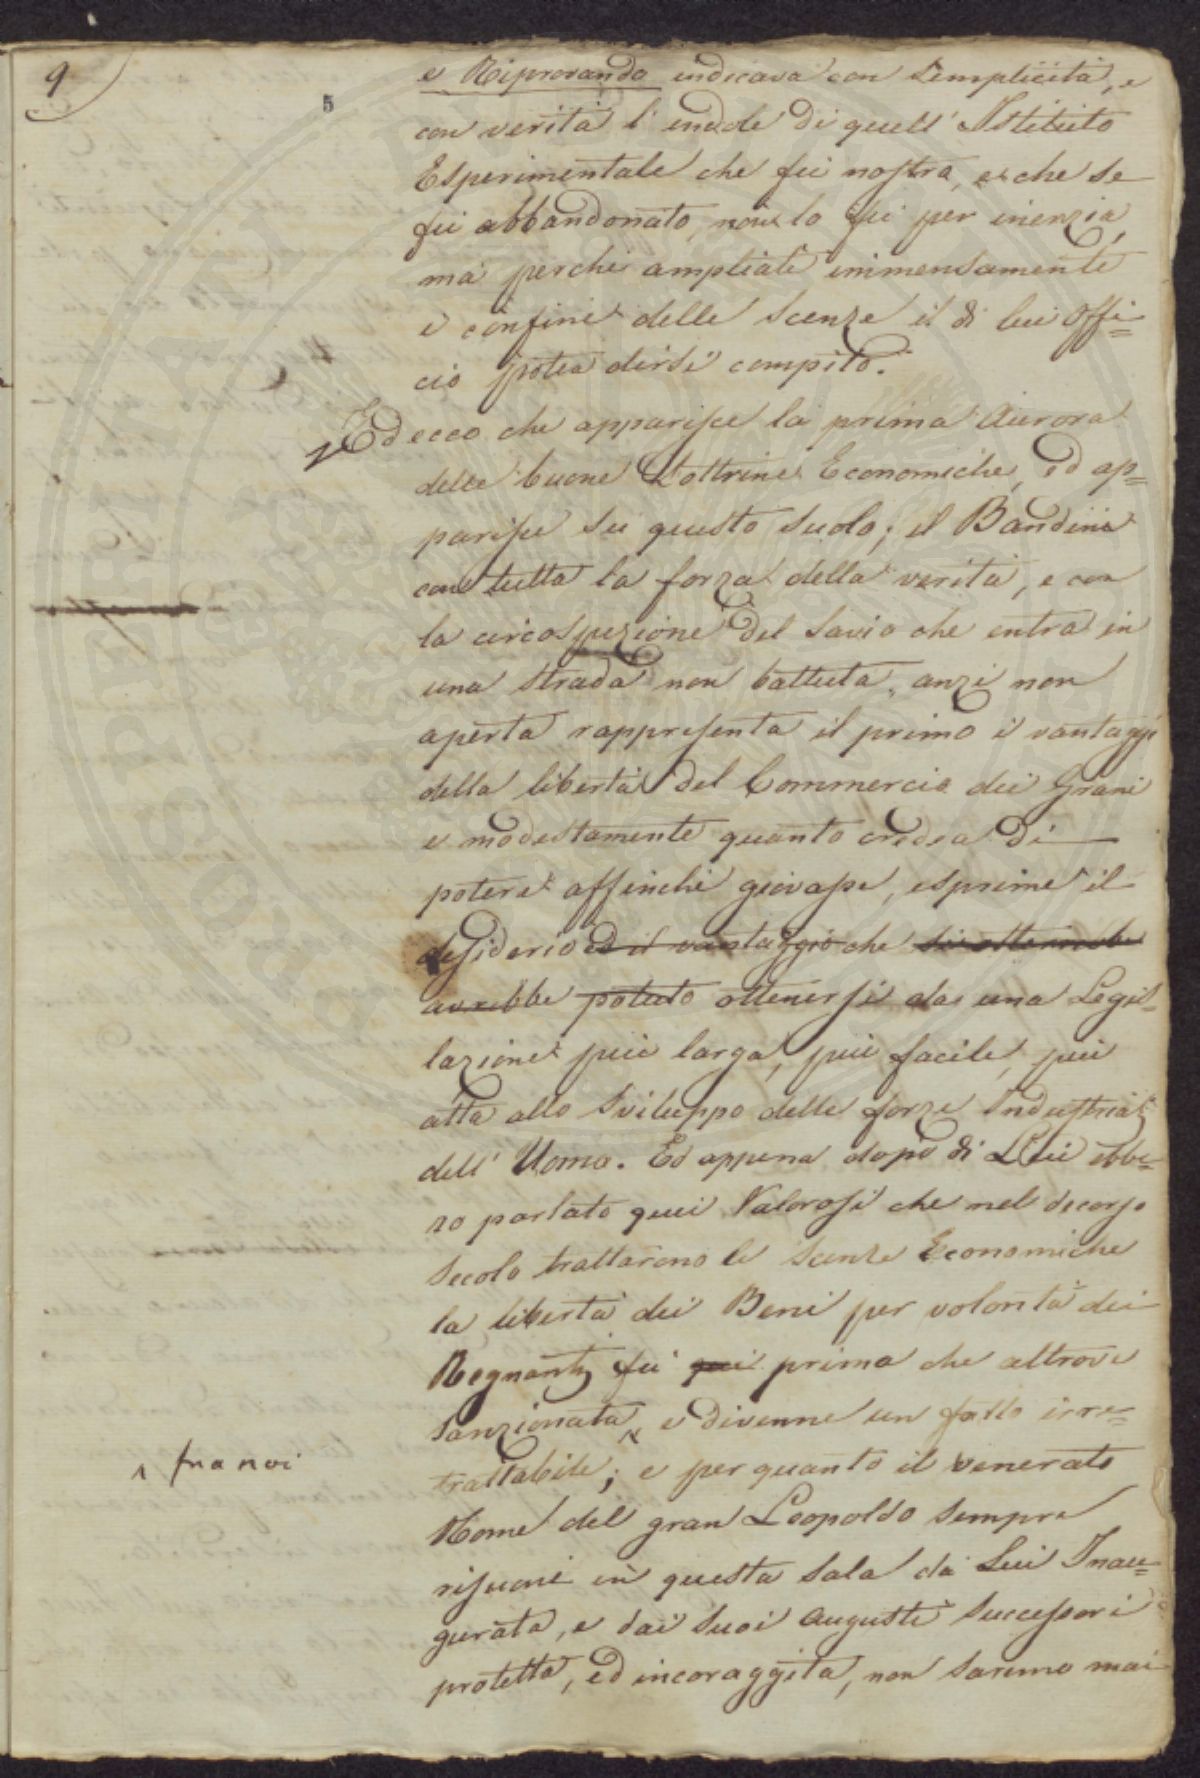 9
5
e Riprovando indicava con semplicità, e
con verità l'indole di quell'Istituto
Esperimentale che fu nostra, e che se
fu abbandonato, non lo fu per inerzia,
ma perchè ampliati immensamente
i confini delle Scenze il di lui Offi=
cio potea dirsi compito.
Ed ecco che apparisce la prima Aurora
delle buone Dottrine Economiche, ed ap=
parisce su questo suolo; il Bandini
con tutta la forza della verità, e con
la circospezione del Savio che entra in
una strada non battuta, anzi non
aperta rappresenta il primo i vantaggi
della libertà del Commercio dei Grani
e modestamente quanto credea di
potere affinchè giovasse, esprime il
desiderio ed il vantaggio che si otterrebbe
avrebbe potuto ottenersi da una Legis=
lazione più larga, più facile, più
atta allo Sviluppo delle forze Industriali
dell'Uomo. Ed appena dopo di Lui ebbe=
ro parlato quei Valorosi che nel decorso
Secolo trattarono le Scenze Economiche
la libertà dei Beni per volontà dei
Regnanti fu qui prima che altrove
Sanzionata, e divenne un fatto irre=
trattabile; e per quanto il venerato
^ fra noi
Nome del gran Leopoldo sempre
risuoni in questa Sala da Lui Inau=
gurata, e dai suoi Augusti Successori
protetta, ed incoraggita, non saremo mai